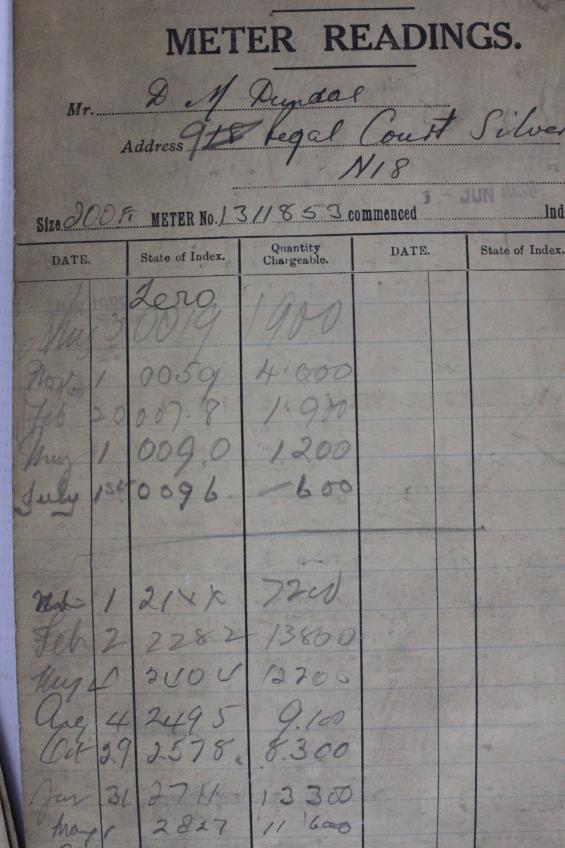 METER READINGS.
Mr. D M Dundas
Address 9 Regal Court Silver
N18
Size 200 ft METER No. 1311853 commenced 1 - JUN Ind
DATE. State of Index. Quantity Chargeable. DATE. State of Index.
Zero
Aug 3 0019 1900
Nov 1 0059 4.000
Feb 2 0078 1.900
May 1 0090 1.200
July 1st 0096 600
1 7200
Feb 2 2282 13800
May 4 2404 12200
Aug 4 2495 9.100
Oct 29 2578. 8.300
Jan 31 2711 13300
May 1 2827 11600